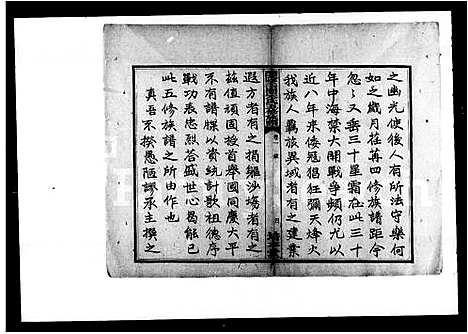 之幽光使後人有所法守樂何
如之歲月荏苒四修族譜距今
忽忽又垂三十星霜在此三十
年中海禁大開戰爭頻仍尤以
近八年來倭寇猖狂彌天烽火
我族人羈族異域者有之建業
遐方者有之捐軀沙場者有之
茲值頑固投首舉國同慶太平
不有譜牒以資統計歌祖德序
戰功表忠烈吾族人曷能已
此五修族譜之所由作也
真吾不揆愚陋謬承主撰之